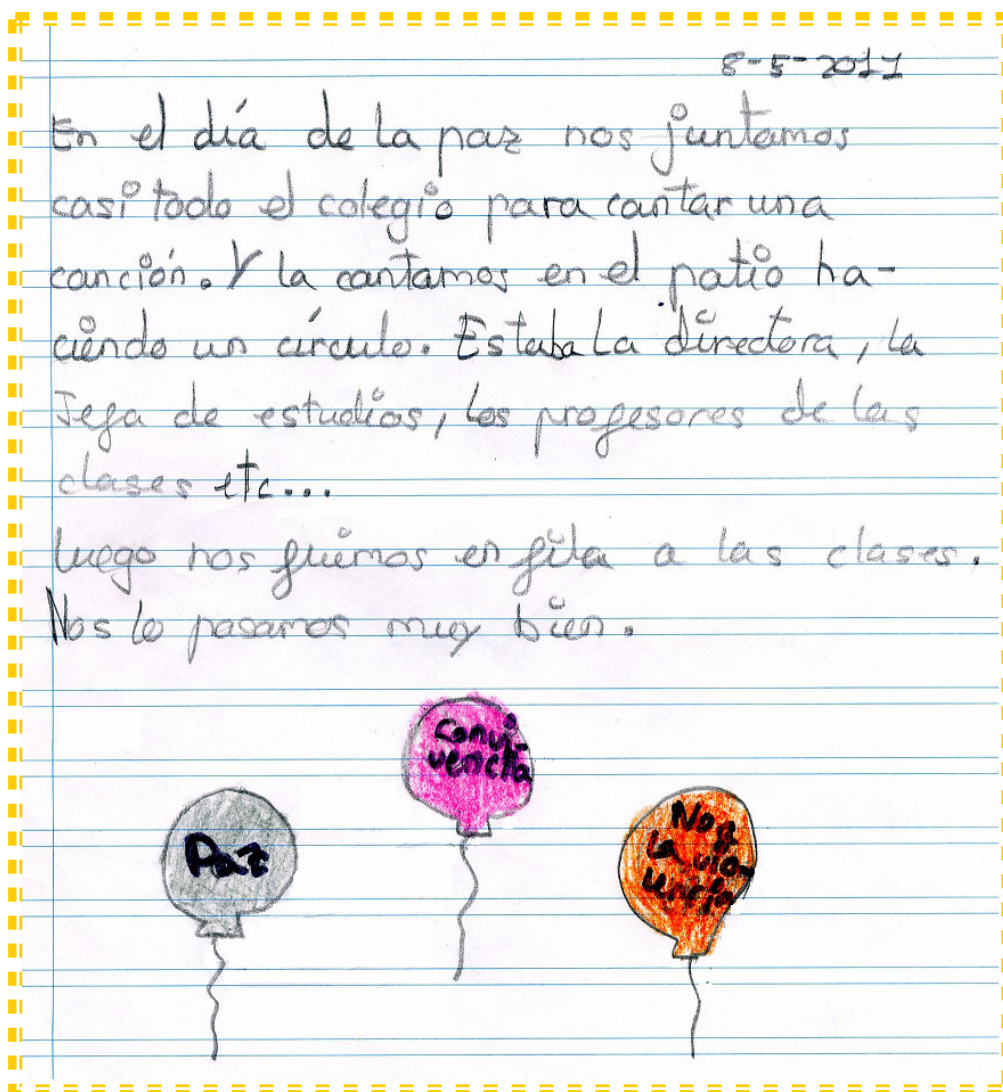 8-5-2011
En el día de la paz nos juntamos
casi todo el colegio para cantar una
canción. Y la cantamos en el patio ha-
ciendo un círculo. Estaba La directora, la
Jefa de estudios, los profesores de las
clases etc...
luego nos fuimos en fila a las clases.
Nos lo pasamos muy bien.
Convi-
vencia
Paz
No a
la vio-
lencia